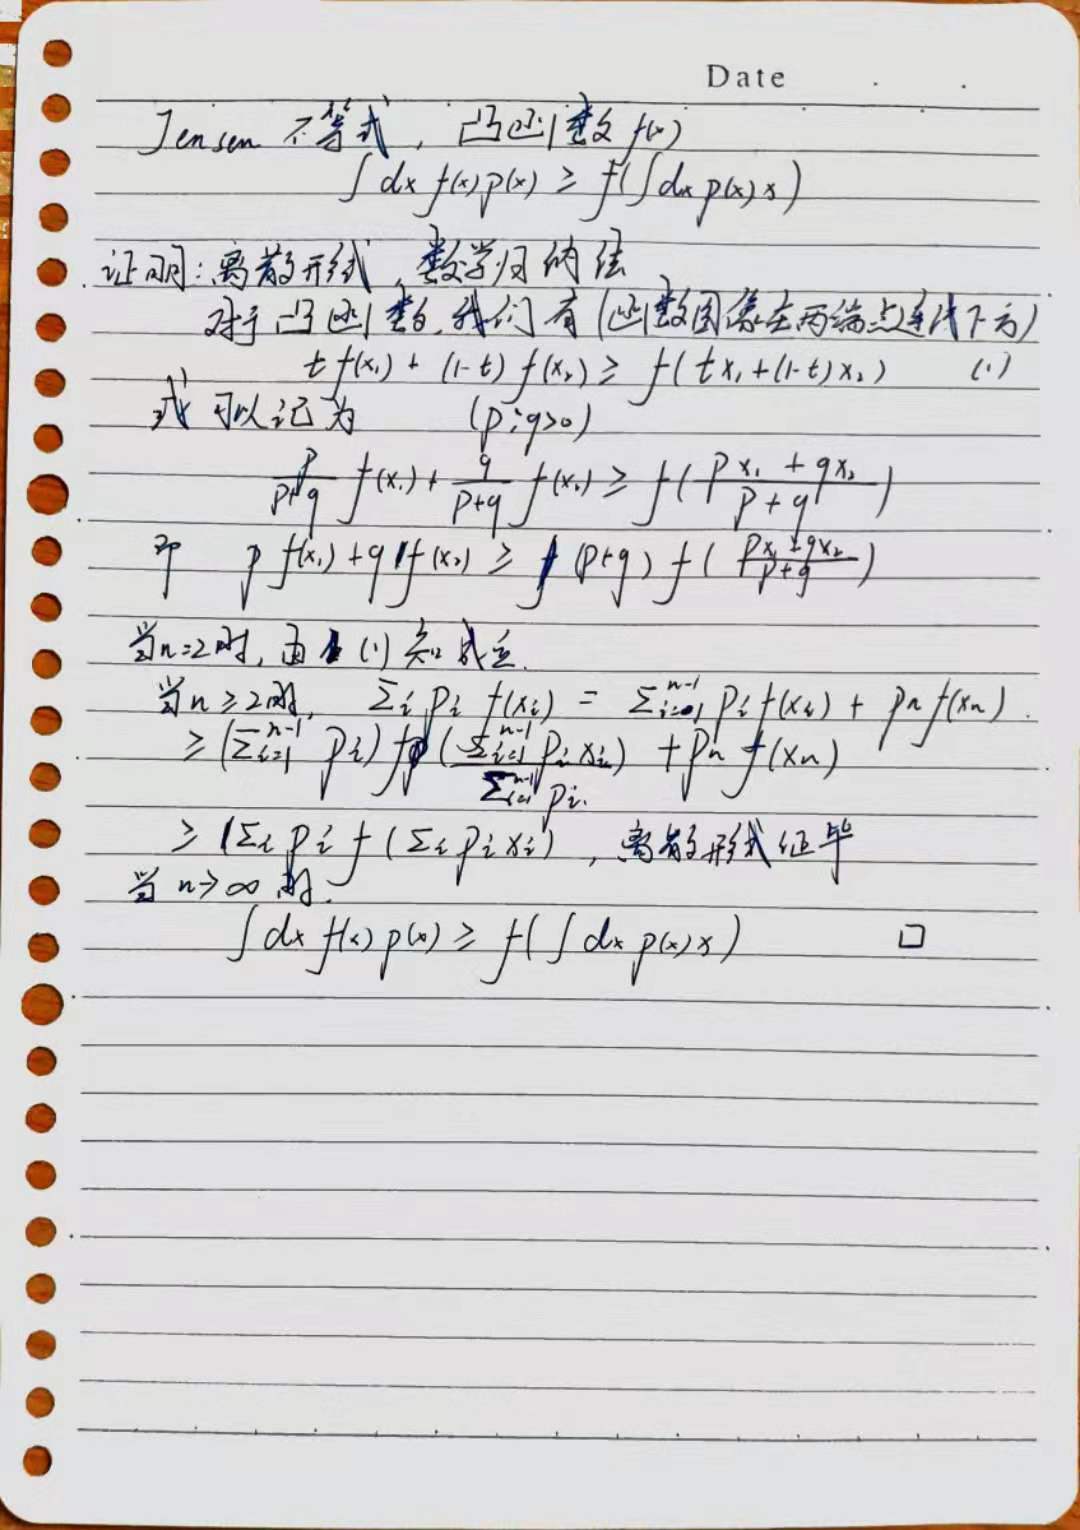 Date
Jensen 不等式，凸函数 f(x)
∫dx f(x) p(x) ≥ f(∫dx p(x) x)
证明：离散形式，数学归纳法
对于凸函数，我们有（函数图像在两端点连线下方）
t f(x₁) + (1-t) f(x₂) ≥ f(t x₁ + (1-t) x₂) (1)
式可以记为 (p,q>0)
p/(p+q) f(x₁) + q/(p+q) f(x₂) ≥ f((p x₁ + q x₂)/(p+q))
即 p f(x₁) + q f(x₂) ≥ (p+q) f((p x₁ + q x₂)/(p+q))
当n=2时，由(1)知成立.
当n≥2时，Σᵢ pᵢ f(xᵢ) = Σᵢ₌₁ⁿ⁻¹ pᵢ f(xᵢ) + pₙ f(xₙ).
≥ (Σᵢ₌₁ⁿ⁻¹ pᵢ) f(Σᵢ₌₁ⁿ⁻¹ pᵢ xᵢ / Σᵢ₌₁ⁿ⁻¹ pᵢ) + pₙ f(xₙ)
≥ (Σᵢ pᵢ f(Σᵢ pᵢ xᵢ)，离散形式证毕
当 n→∞ 时.
∫dx f(x) p(x) ≥ f(∫dx p(x) x) □